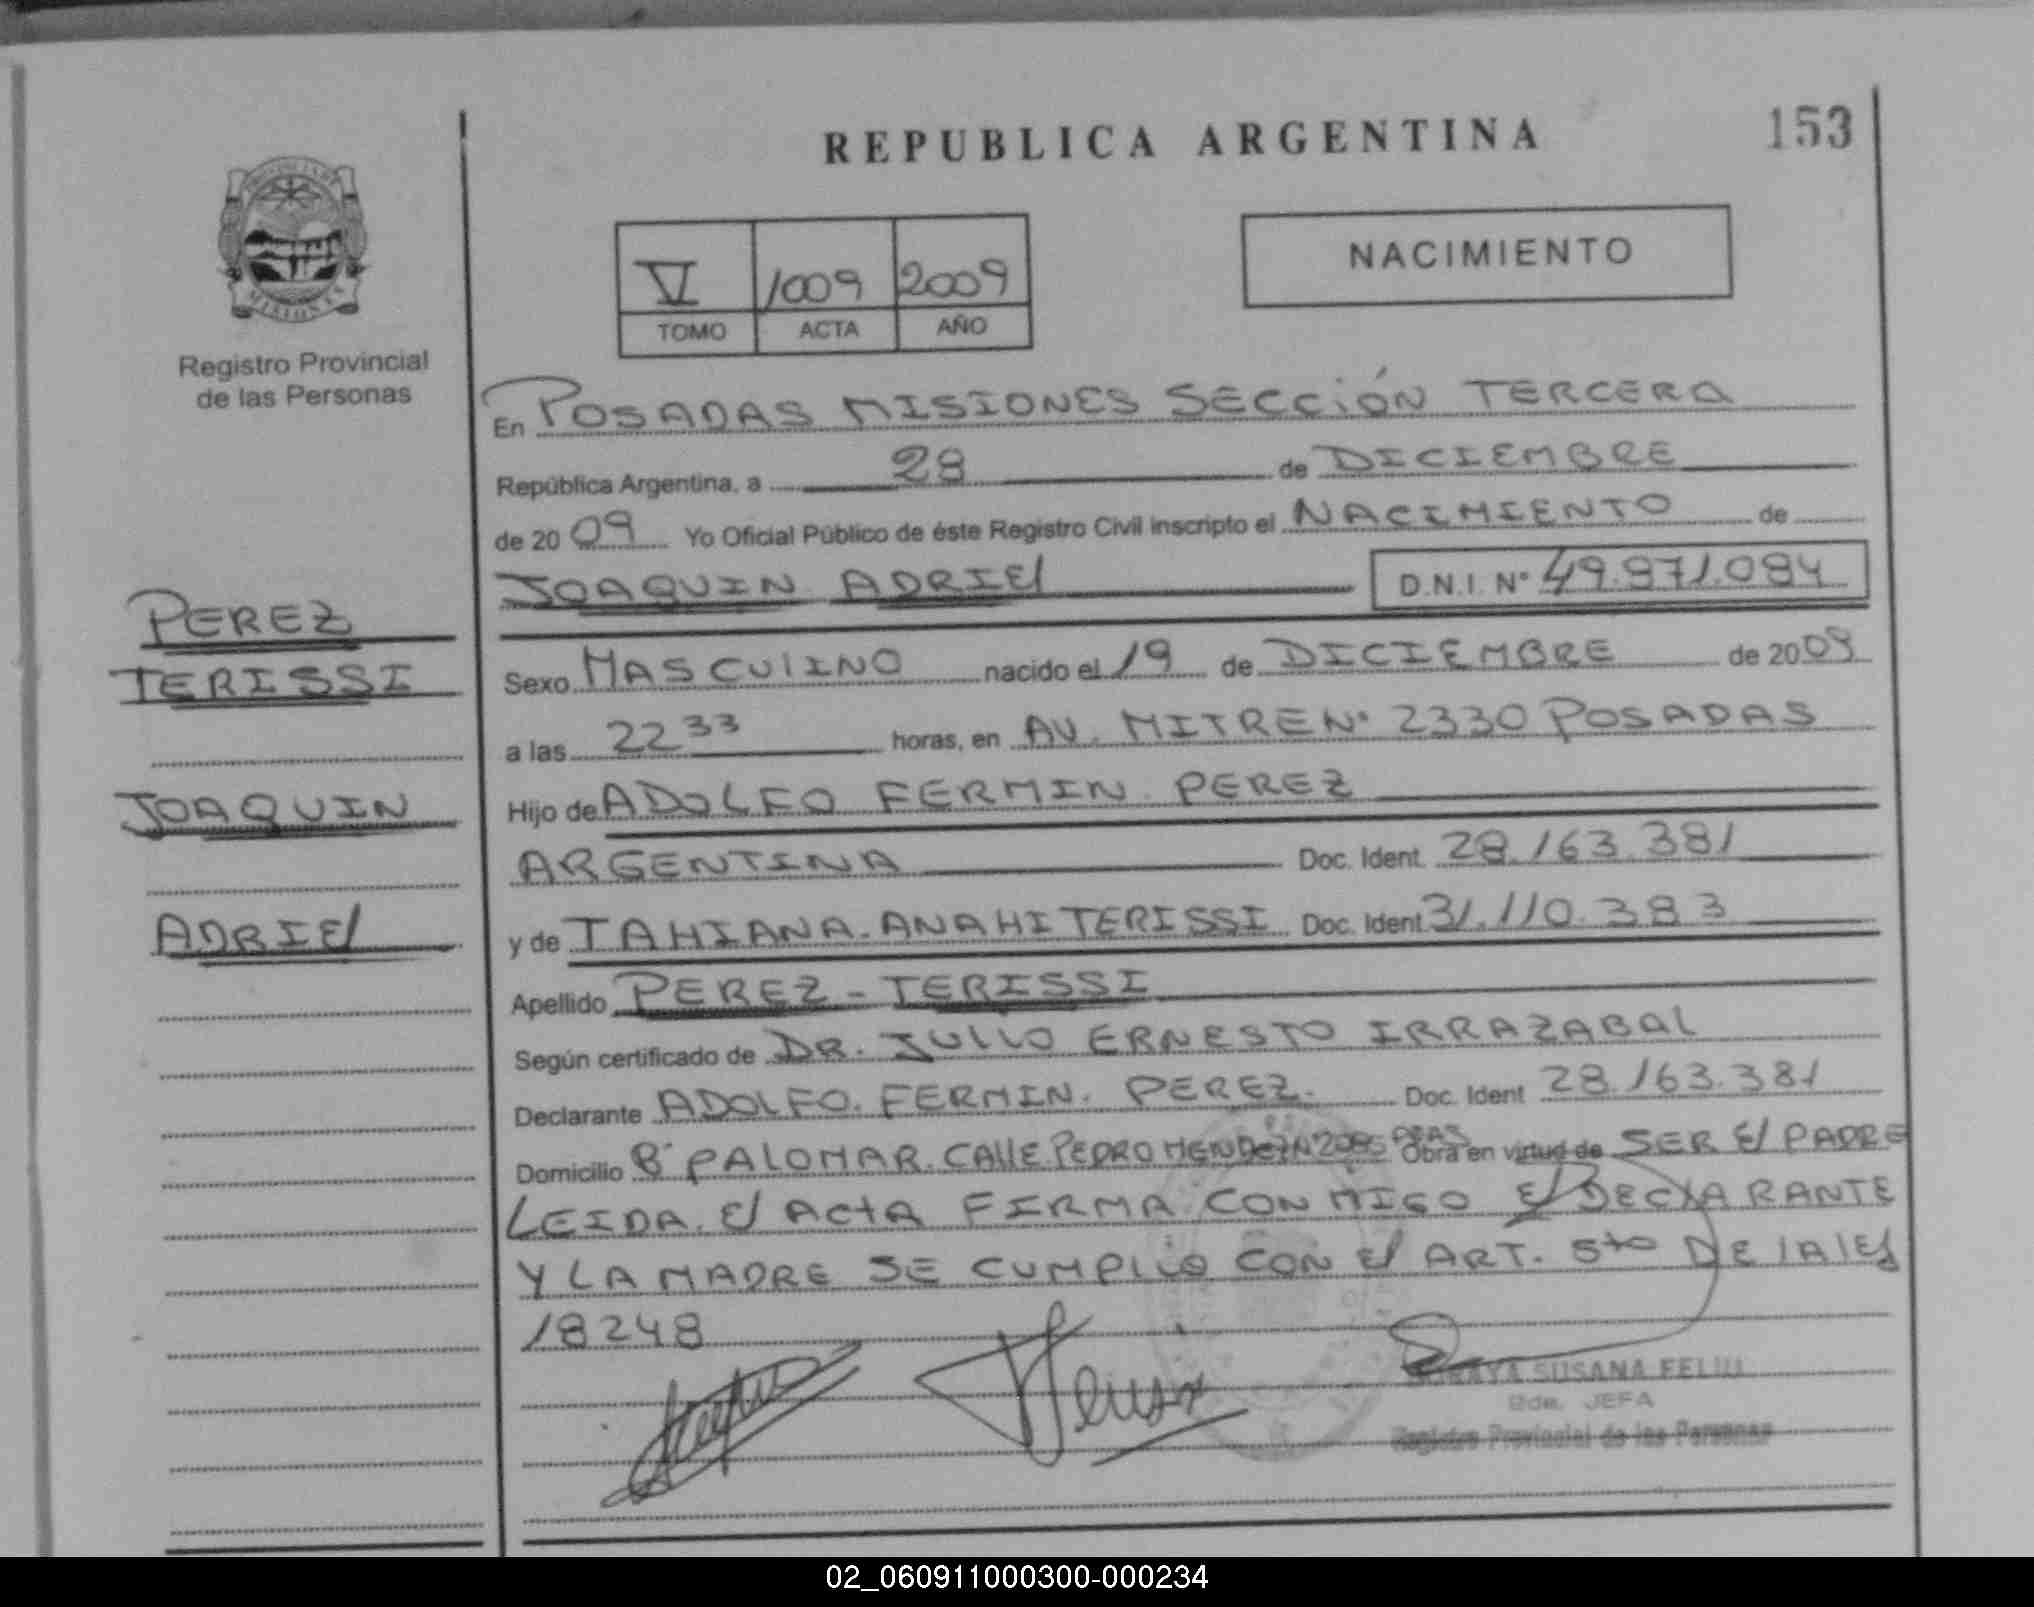 REPUBLICA ARGENTINA
153
NACIMIENTO
V 1009 2009
TOMO ACTA AÑO
Registro Provincial
de las Personas
En POSADAS MISIONES SECCIÓN TERCERA
República Argentina, a 28 de DICIEMBRE
de 20 09 Yo Oficial Público de éste Registro Civil inscripto el NACIMIENTO de
JOAQUIN ADRIEL D.N.I. N° 49.971.094
PEREZ
TERISSI
JOAQUIN
ADRIEL
Sexo MASCULINO nacido el 19 de DICIEMBRE de 2009
a las 22 33 horas, en AV. MITRE N° 2330 POSADAS
Hijo de ADOLFO FERMIN PEREZ
ARGENTINA Doc. Ident. 28.163.381
y de TAHIANA ANAHI TERISSI Doc. Ident 31.110.383
Apellido PEREZ - TERISSI
Según certificado de DR. JULIO ERNESTO IRRAZABAL
Declarante ADOLFO. FERMIN. PEREZ. Doc. Ident 28.163.381
Domicilio B° PALOMAR. CALLE PEDRO MENDEZ Obra en virtud de SER EL PADRE
LEIDA. EL ACTA FIRMA CONMIGO EL DECLARANTE
Y LA MADRE SE CUMPLIO CON EL ART. 5to DE LA LEY
18248
SORAYA SUSANA FELIU
JEFA
Registro Provincial de las Personas
02_060911000300-000234